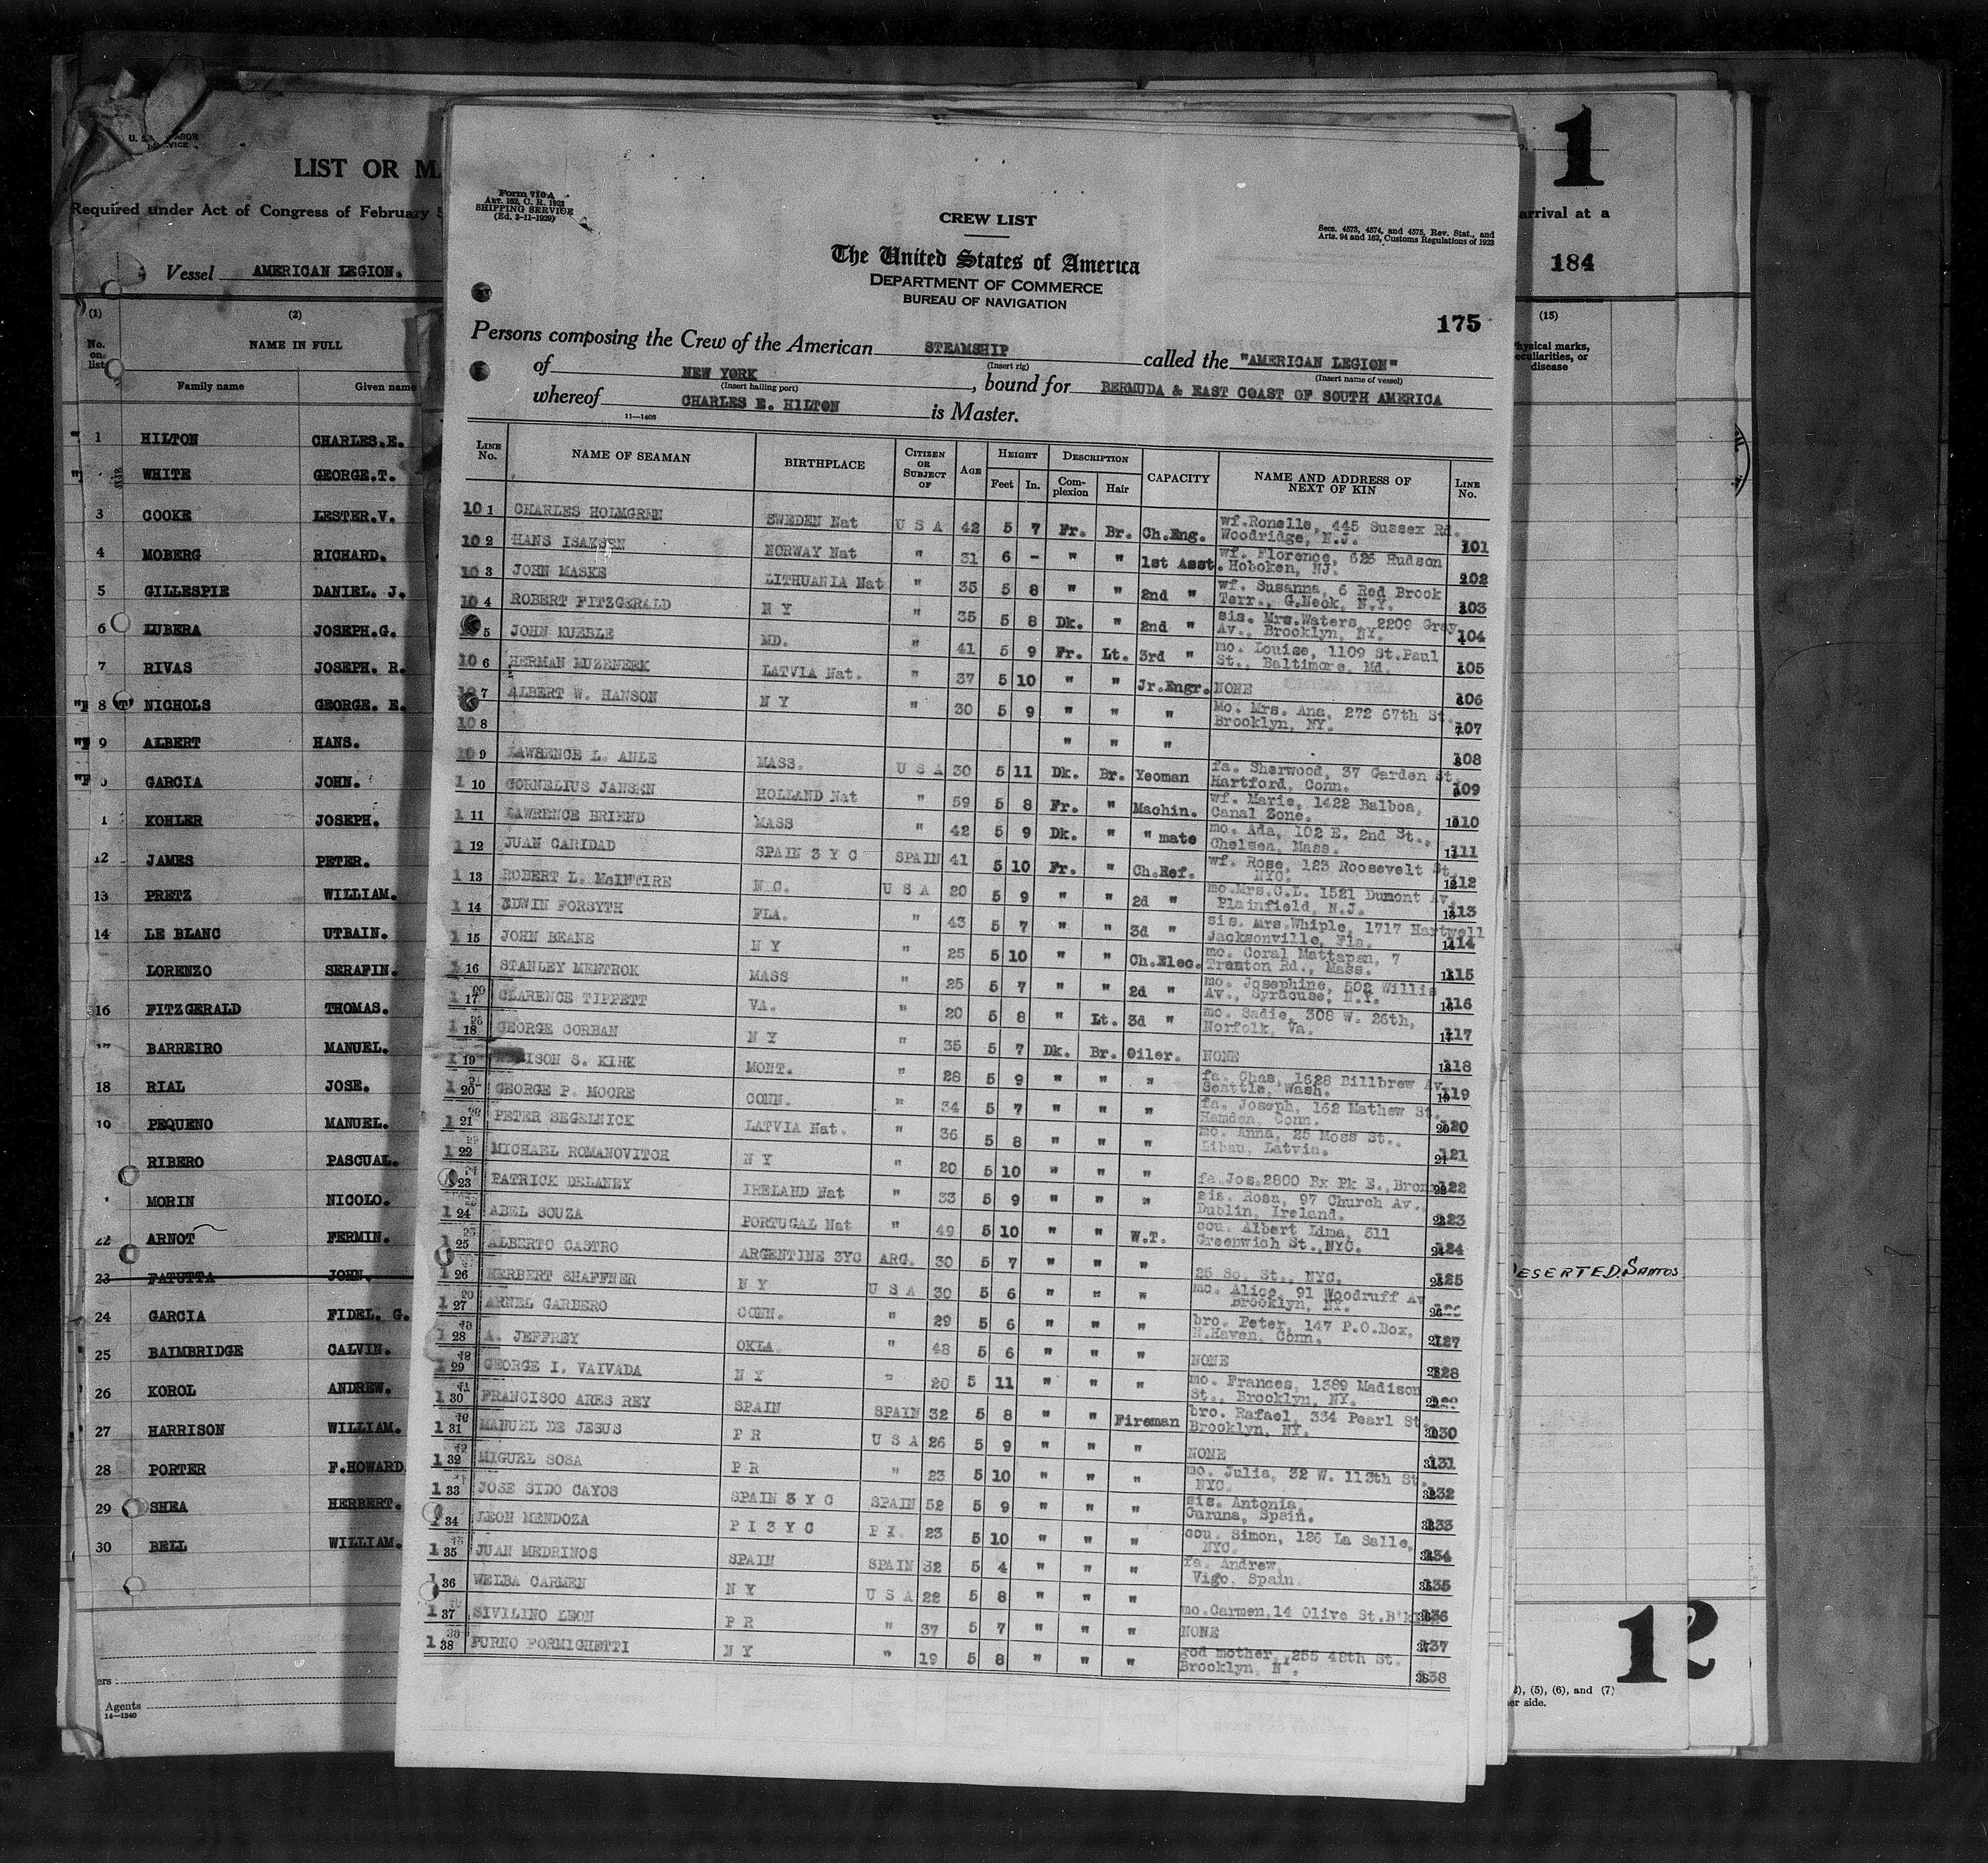 LIST OR MA
Required under Act of Congress of February 5
Vessel AMERICAN LEGION.
(1) (2)
No. on list NAME IN FULL
Family name Given name
1 HILTON CHARLES.E.
WHITE GEORGE.T.
3 COOKE LESTER.V.
4 MOBERG RICHARD.
5 GILLESPIE DANIEL. J.
6 LUBERA JOSEPH.G.
7 RIVAS JOSEPH. R.
8 NICHOLS GEORGE. E.
9 ALBERT HANS.
GARCIA JOHN.
1 KOHLER JOSEPH.
12 JAMES PETER.
13 PRETZ WILLIAM.
14 LE BLANC UTBAIN.
LORENZO SERAFIN.
16 FITZGERALD THOMAS.
17 BARREIRO MANUEL.
18 RIAL JOSE.
19 PEQUENO MANUEL.
RIBERO PASCUAL.
MORIN NICOLO.
22 ARNOT FERMIN.
23 FATUTTA JOHN.
24 GARCIA FIDEL. G.
25 BAIMBRIDGE CALVIN.
26 KOROL ANDREW.
27 HARRISON WILLIAM.
28 PORTER F.HOWARD
29 SHEA HERBERT.
30 BELL WILLIAM.
ers
Agents
14—1240
Form 710-A
Art. 162, C. R. 1923
SHIPPING SERVICE
(Ed. 3-11-1929)
CREW LIST
Secs. 4573, 4574, and 4575, Rev. Stat., and
Arts. 94 and 162, Customs Regulations of 1923
The United States of America
DEPARTMENT OF COMMERCE
BUREAU OF NAVIGATION
175
Persons composing the Crew of the American STEAMSHIP called the "AMERICAN LEGION"
(Insert rig) (Insert name of vessel)
of NEW YORK, bound for BERMUDA & EAST COAST OF SOUTH AMERICA
(Insert hailing port)
whereof CHARLES E. HILTON is Master.
11—1408
LINE No. NAME OF SEAMAN BIRTHPLACE CITIZEN OR SUBJECT OF AGE HEIGHT Feet In. DESCRIPTION Complexion Hair CAPACITY NAME AND ADDRESS OF NEXT OF KIN LINE No.
10 1 CHARLES HOLMGREN SWEDEN Nat U S A 42 5 7 Fr. Br. Ch.Eng. wf.Ronelle, 445 Sussex Rd. Woodridge, N.J. 101
10 2 HANS ISAKSEN NORWAY Nat " 31 6 - " " 1st Asst. wf. Florence, 625 Hudson Hoboken, NJ. 102
10 3 JOHN MASKE LITHUANIA Nat " 35 5 8 " " 2nd " wf. Susanna, 6 Red Brook Terr., G.Neck, N.Y. 103
10 4 ROBERT FITZGERALD N Y " 35 5 8 Dk. " 2nd " sis. Mrs.Waters, 2209 Gray Av., Brooklyn, NY. 104
5 JOHN KUEBLE MD. " 41 5 9 Fr. Lt. 3rd " mo. Louise, 1109 St.Paul St., Baltimore, Md. 105
10 6 HERMAN MUZENEEK LATVIA Nat. " 37 5 10 " " Jr.Engr. NONE 106
7 ALBERT W. HANSON N Y " 30 5 9 " " " Mo. Mrs. Ana, 272 67th St. Brooklyn, NY. 107
10 8 " " " 108
10 9 LAWRENCE L. ANLE MASS. U S A 30 5 11 Dk. Br. Yeoman fa. Sherwood, 37 Garden St. Hartford, Conn. 109
1 10 CORNELIUS JANSEN HOLLAND Nat " 59 5 8 Fr. " Machin. wf. Marie, 1422 Balboa, Canal Zone. 110
1 11 LAWRENCE BRIEND MASS " 42 5 9 Dk. " " mate mo. Ada, 102 E. 2nd St., Chelsea, Mass. 111
1 12 JUAN CARIDAD SPAIN 3 Y C SPAIN 41 5 10 Fr. " Ch.Ref. wf. Rose, 123 Roosevelt St. NYC. 112
1 13 ROBERT L. McINTIRE N.C. U S A 20 5 9 " " 2d " mo.Mrs.C.L. 1521 Dumont Av. Plainfield, N.J. 113
1 14 EDWIN FORSYTH FLA. " 43 5 7 " " 3d " sis. Mrs.Whiple, 1717 Hartwell Jacksonville, Fla. 114
1 15 JOHN BEANE N Y " 25 5 10 " " Ch.Elec. mo. Coral Mattapan, 7 Tranton Rd., Mass. 115
1 16 STANLEY MENTROK MASS " 25 5 7 " " 2d " mo. Josephine, 502 Willis Av., Syracuse, N.Y. 116
1 17 CLARENCE TIPPETT VA. " 20 5 8 " Lt. 3d " mo. Sadie, 308 W. 26th, Norfolk, Va. 117
1 18 GEORGE CORBAN N Y " 35 5 7 Dk. Br. Oiler. NONE 118
1 19 S. KIRK MONT. " 28 5 9 " " " fa. Chas, 1628 Billbrew Av. Seattle, Wash. 119
1 20 GEORGE P. MOORE CONN. " 34 5 7 " " " fa. Joseph, 162 Mathew St. Hamden, Conn. 120
1 21 PETER SEGELNICK LATVIA Nat. " 36 5 8 " " " mo. Anna, 25 Moss St., Libau, Latvia. 121
1 22 MICHAEL ROMANOVITCH N Y " 20 5 10 " " " fa.Jos.2800 Bx Pk E., Bronx 122
23 PATRICK DELANEY IRELAND Nat " 33 5 9 " " " sis. Rosa, 97 Church Av., Dublin, Ireland. 123
1 24 ABEL SOUZA PORTUGAL Nat " 49 5 10 " " W.T. cou. Albert Lima, 511 Greenwich St., NYC. 124
25 ALBERTO CASTRO ARGENTINE 3YC ARG. 30 5 7 " " " 25 So. St., NYC. 125
1 26 HERBERT SHAFFNER N Y U S A 30 5 6 " " " mo. Alice, 91 Woodruff Av Brooklyn, NY. 26
1 27 ARNEL GARBERO CONN. " 29 5 6 " " " bro. Peter, 147 P.O.Box, N.Haven, Conn. 127
1 28 A. JEFFREY OKLA. " 48 5 6 " " " NONE 128
1 29 GEORGE I. VAIVADA N Y " 20 5 11 " " " mo. Frances, 1389 Madison St., Brooklyn, NY. 29
1 30 FRANCISCO ARES REY SPAIN SPAIN 32 5 8 " " Fireman bro. Rafael, 334 Pearl St. Brooklyn, NY. 130
1 31 MANUEL DE JESUS P R U S A 26 5 9 " " " NONE 131
1 32 MIGUEL SOSA P R " 23 5 10 " " " mo. Julia, 32 W. 113th St. NYC. 132
1 33 JOSE SIDO CAYOS SPAIN 3 Y C SPAIN 52 5 9 " " " sis. Antonia, Caruna, Spain. 133
34 LEON MENDOZA P I 3 Y C P I. 23 5 10 " " " cou. Simon, 126 La Salle, NYC. 134
1 35 JUAN MEDRINOS SPAIN SPAIN 32 5 4 " " " fa. Andrew, Vigo, Spain. 135
36 WELBA CARMEN N Y U S A 22 5 8 " " " mo.Carmen,14 Olive St.B'klyn 136
1 37 SIVILINO LEON P R " 37 5 7 " " " NONE 137
1 38 FURNO FORMIGHETTI N Y " 19 5 8 " " " god mother, 255 48th St. Brooklyn, N Y. 138
1
arrival at a
184
(15)
Physical marks, peculiarities, or disease
DESERTED. SANTOS.
12
2), (5), (6), and (7)
er side.